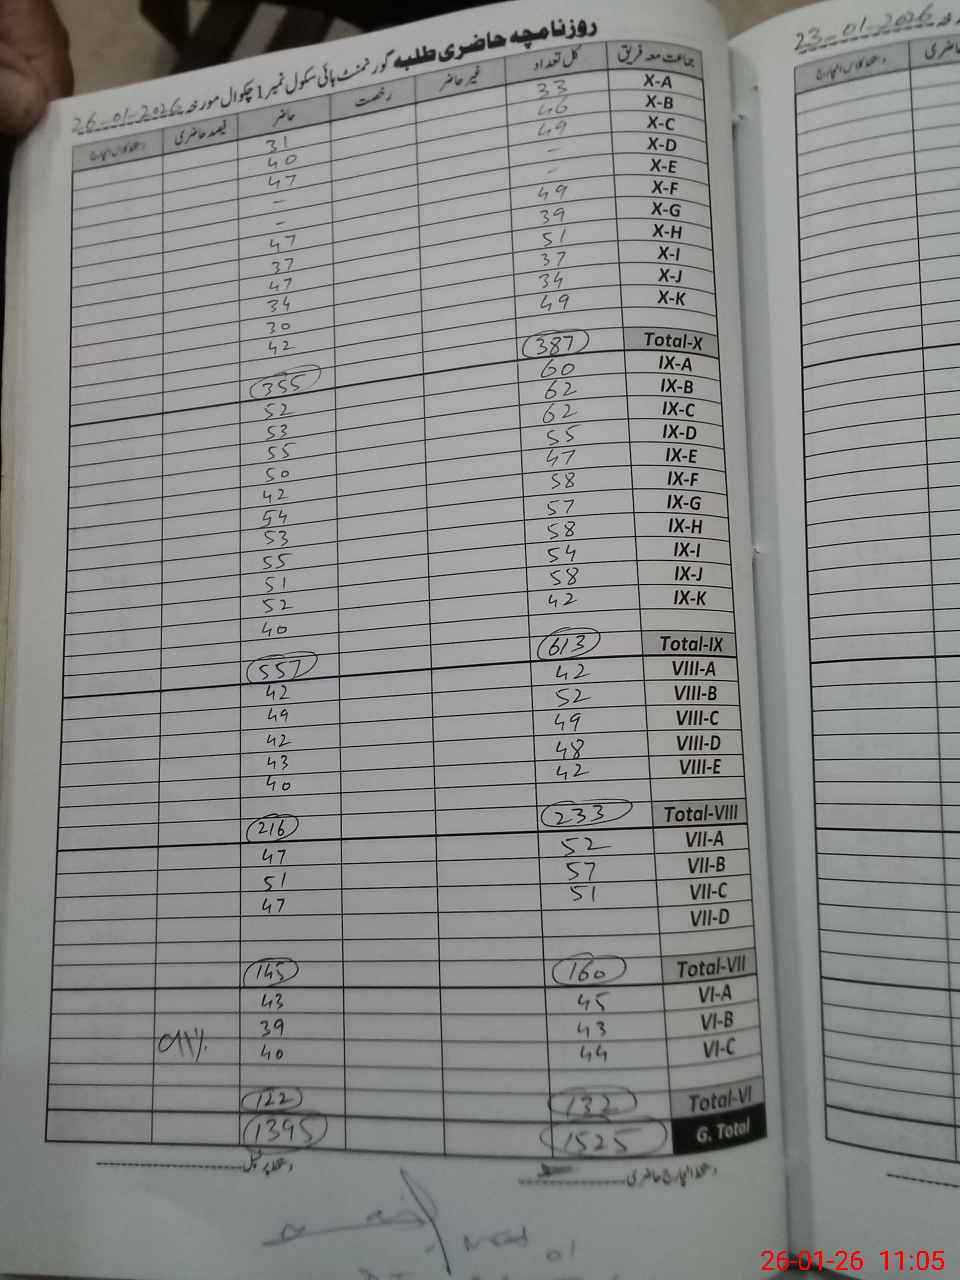 روزنامچہ حاضری طلبہ گورنمنٹ ہائی سکول نمبر 1 چکوال مورخہ 26-01-2026
جماعت معہ فریق کل تعداد غیر حاضر رخصت حاضر فیصد حاضری
X-A 33 31
X-B 46 40
X-C 49 47
X-D - -
X-E - -
X-F 49 47
X-G 39 37
X-H 51 47
X-I 37 34
X-J 34 30
X-K 49 42
Total-X 387 355
IX-A 60 52
IX-B 62 53
IX-C 62 55
IX-D 55 50
IX-E 47 42
IX-F 58 54
IX-G 57 53
IX-H 58 55
IX-I 54 51
IX-J 58 52
IX-K 42 40
Total-IX 613 557
VIII-A 42 42
VIII-B 52 49
VIII-C 49 42
VIII-D 48 43
VIII-E 42 40
Total-VIII 233 216
VII-A 52 47
VII-B 57 51
VII-C 51 47
VII-D
Total-VII 160 145
VI-A 45 43
VI-B 43 39
VI-C 44 40 91%
Total-VI 132 122
G. Total 1525 1395
دستخط انچارج حاضری دستخط پرنسپل
23-01-2026
حاضری
26-01-26 11:05